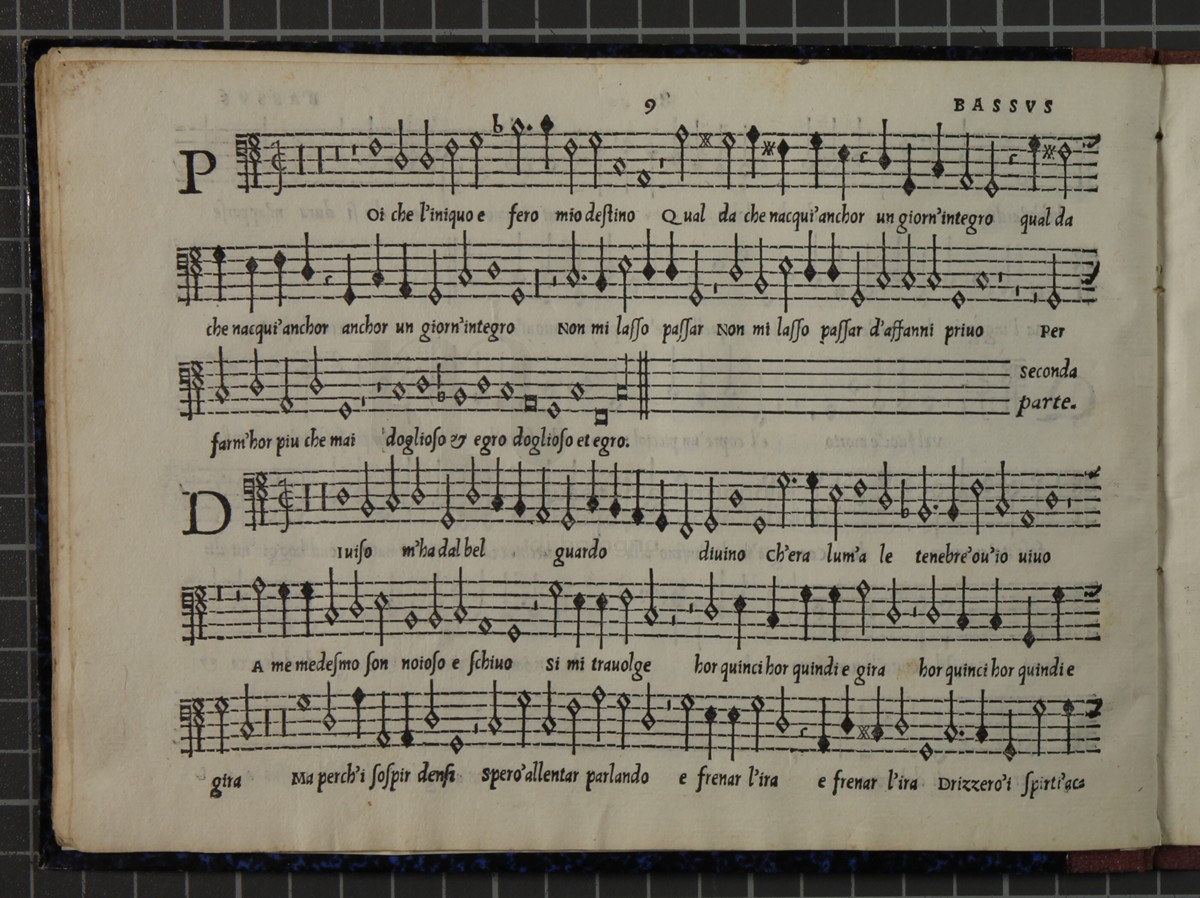 9 BASSVS
POi che l'iniquo e fero mio deſtino Qual da che nacqui'anchor un giorn'integro qual da
che nacqui'anchor anchor un giorn'integro Non mi laſſo paſſar Non mi laſſo paſſar d'affanni priuo Per
seconda
parte.
farm'hor piu che mai doglioſo & egro doglioſo et egro.
DIuiſo m'ha dal bel guardo diuino ch'era lum'a le tenebre'ou'io uiuo
A me medeſmo ſon noioſo e ſchiuo si mi trauolge hor quinci hor quindi e gira hor quinci hor quindi e
gira Ma perch'i ſoſpir denſi spero'allentar parlando e frenar l'ira e frenar l'ira Drizzero'i ſpirti'acs